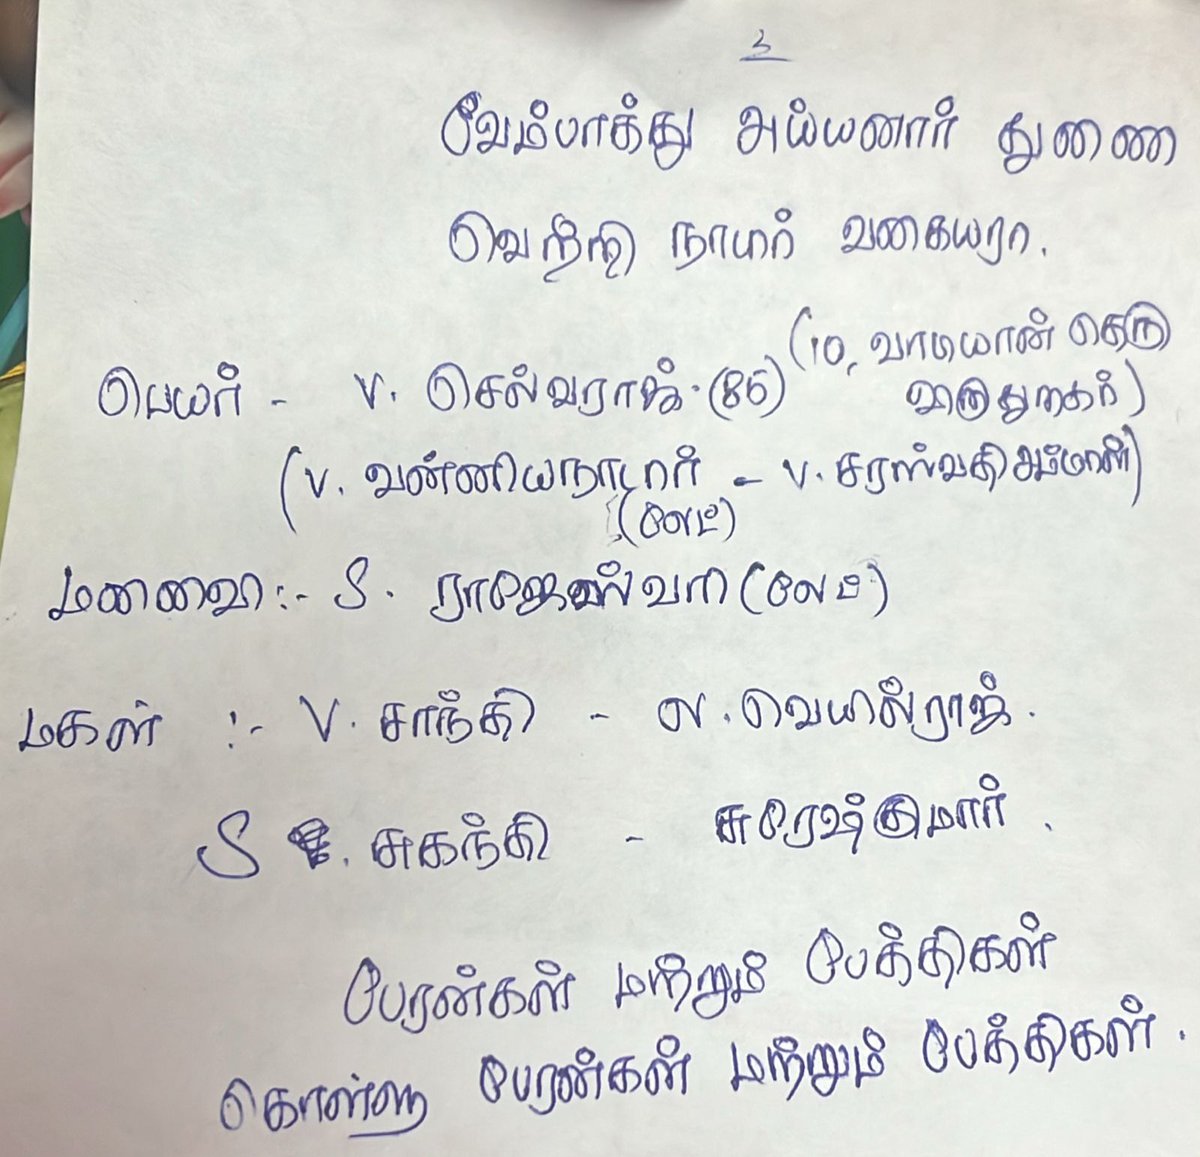 உ
வேம்பாத்து அய்யனார் துணை
வெற்றி நாடார் வகையரா.
பெயர் - V. செல்வராஜ். (86) (10, வாடியான் தெரு
விருதுநகர்)
(V. வன்னியநாடார் - V. சரஸ்வதி அம்மாள்)
(லேட்)
மனைவி :- S. ராஜேஸ்வரி (லேட்)
மகள் :- V. சாந்தி - வெயில்ராஜ்.
S. சுகந்தி - சுரேஷ்குமார்.
பேரன்கள் மற்றும் பேத்திகள்
கொள்ளு பேரன்கள் மற்றும் பேத்திகள்.